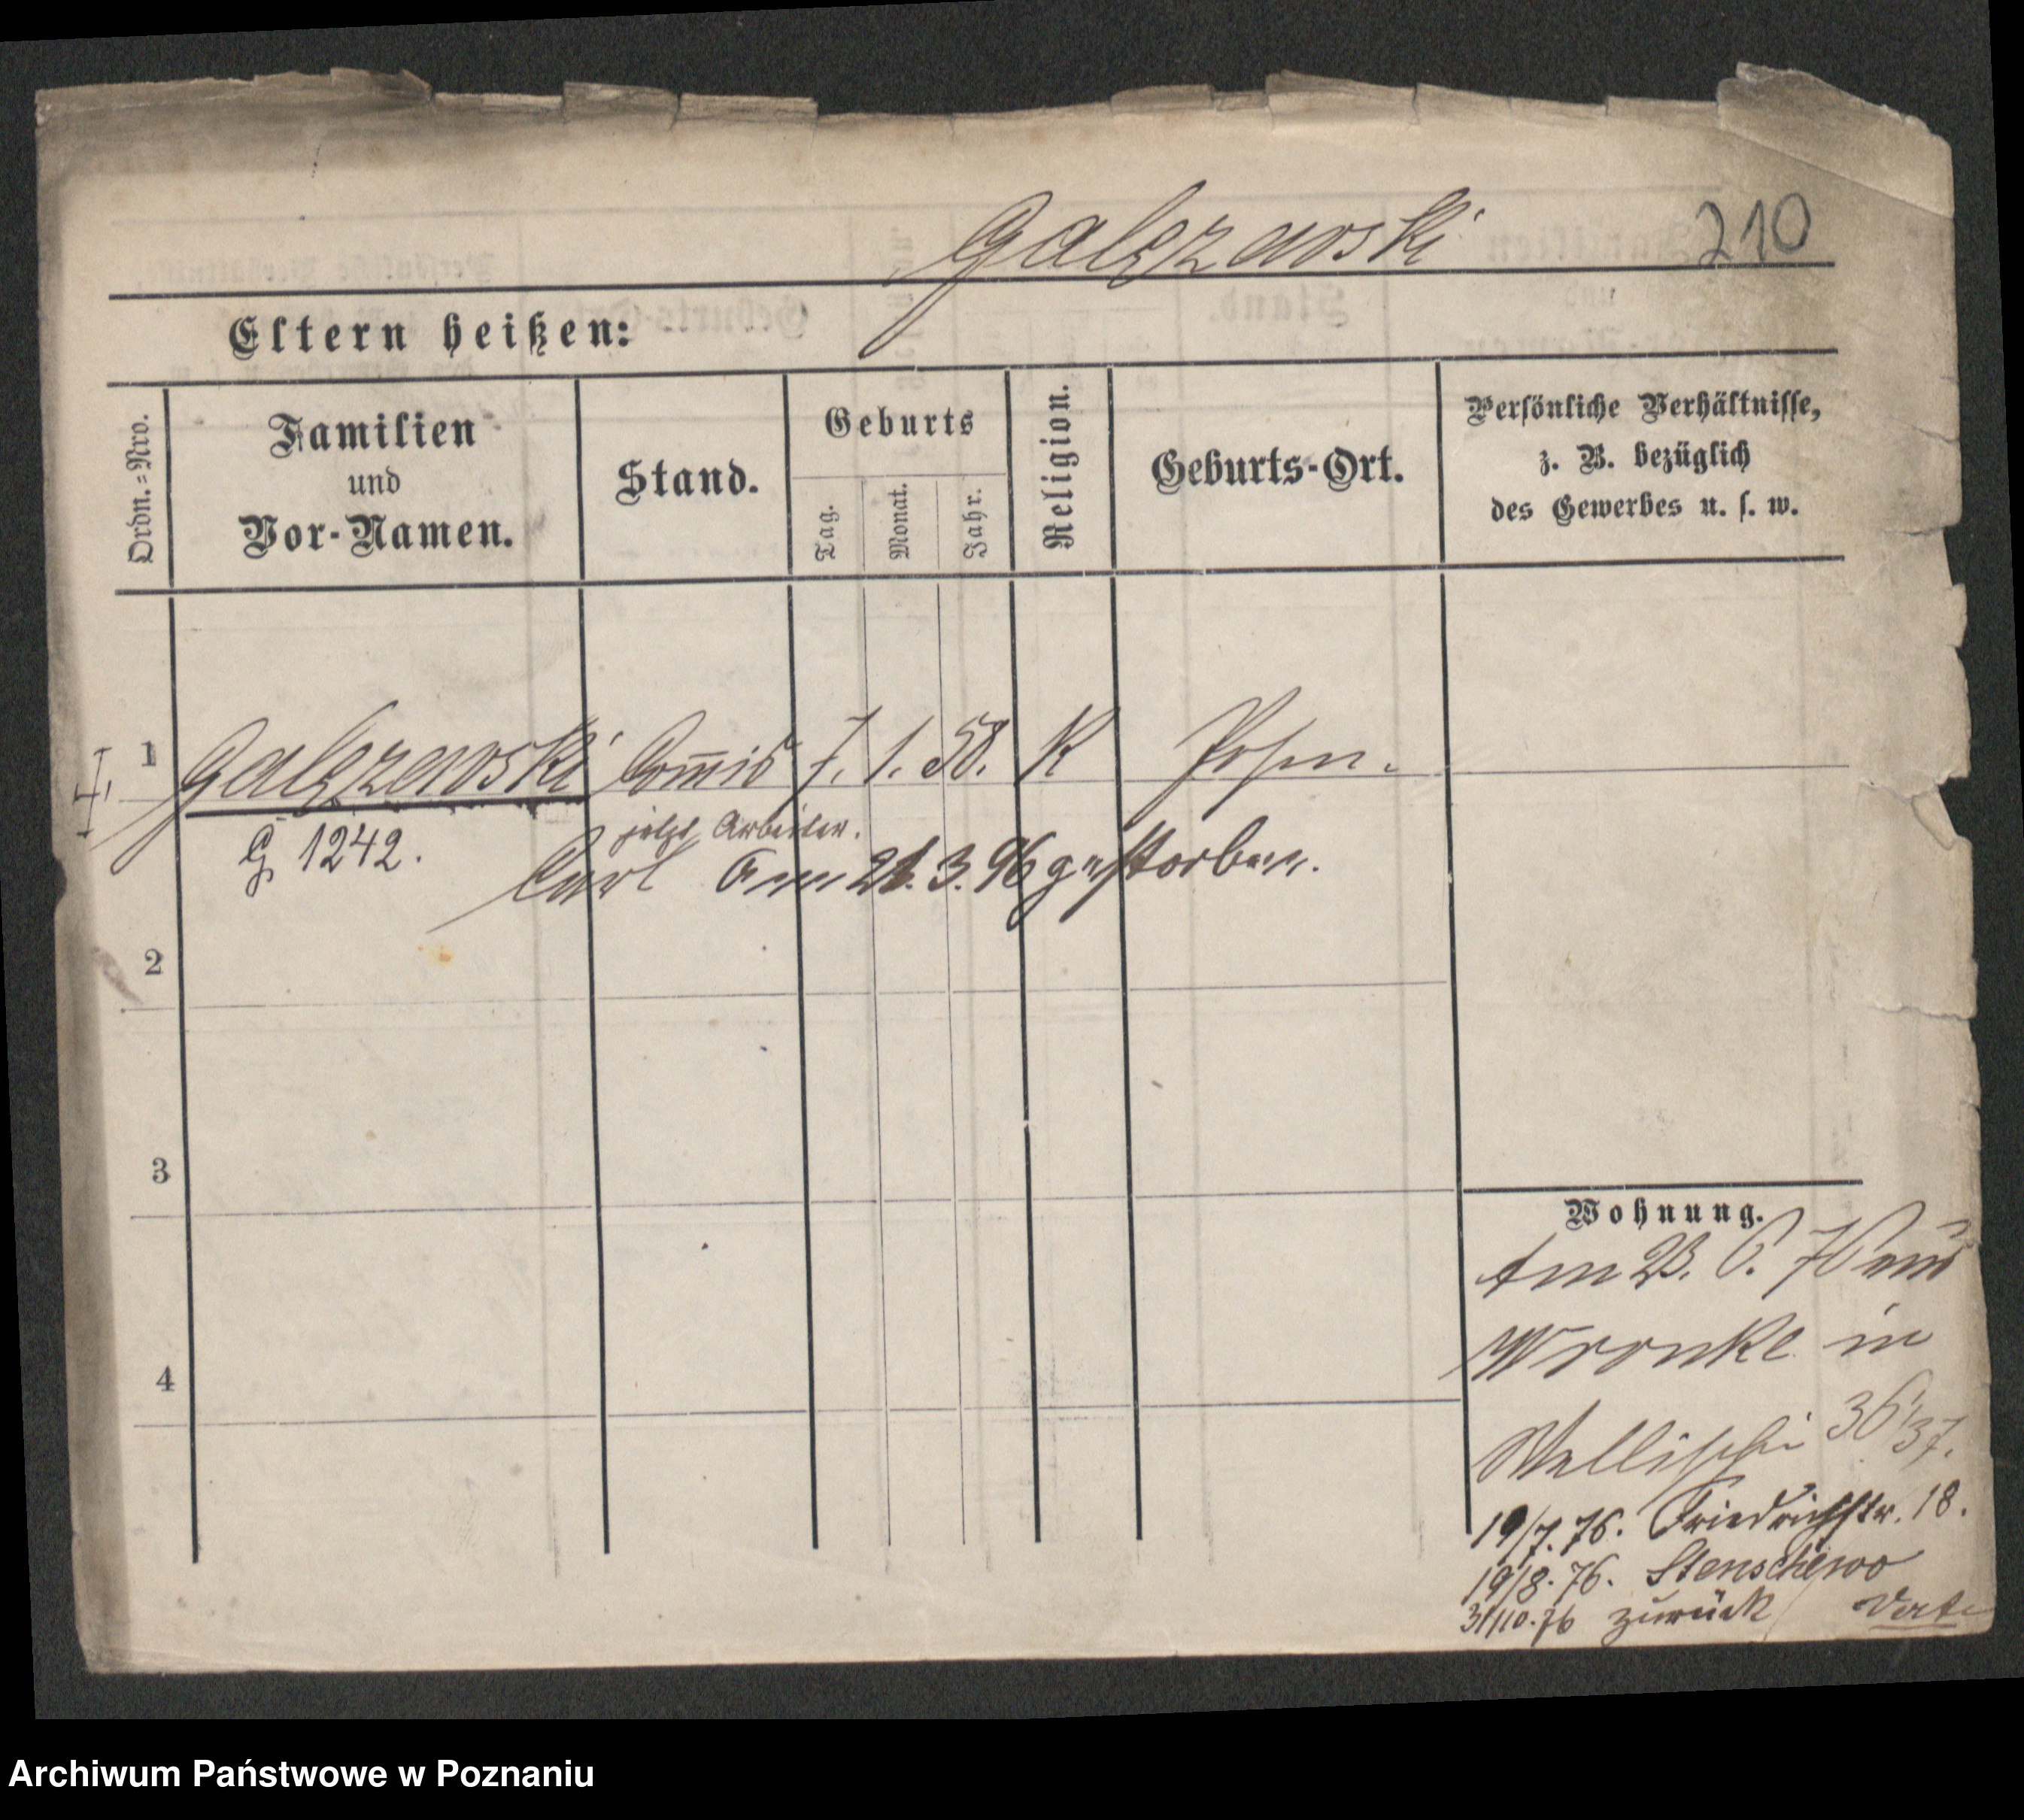 Galęzewski 210
Eltern heißen:
Ordn.-Nro.
Familien
und
Vor-Namen.
Stand.
Geburts
Tag.
Monat.
Jahr.
Religion.
Geburts-Ort.
Persönliche Verhältnisse,
z. B. bezüglich
des Gewerbes u. s. w.
1 Galęzewski Com̄is 7. 1. 58. K Posen.
jetzt Arbeiter.
G 1242.
Carl Am 21. 3. 96 gestorben.
2
3
4
Wohnung.
Am 23. 6. 76 aus
Wronke in
Wallischei 36/37.
19/7. 76. Friedrichstr. 18.
19/8. 76. Stenschewo
31/10. 76 zurück
Archiwum Państwowe w Poznaniu